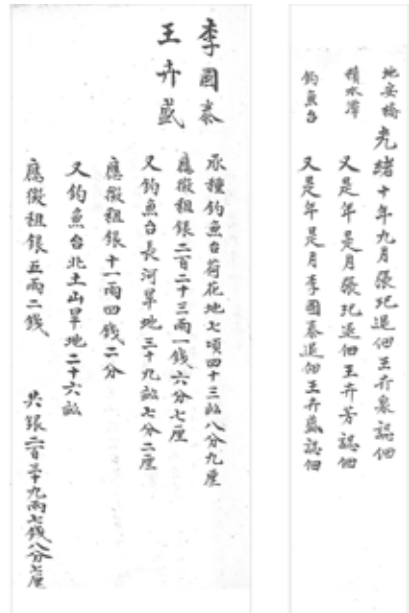 地安橋 光緒十年九月張玘退佃王卉泉認佃
積水潭 又是年是月張玘退佃王卉芳認佃
釣魚台 又是年是月李國泰退佃王卉盛認佃
李國泰
王卉盛
承種釣魚台荷花地七頃四十三畝八分九厘
應徵租銀二百二十三兩一錢六分七厘
又釣魚台長河旱地三十九畝七分二厘
應徵租銀十一兩四錢二分
又釣魚台北土山旱地二十六畝
應徵租銀五兩二錢 共銀二百三十九兩七錢八分七厘